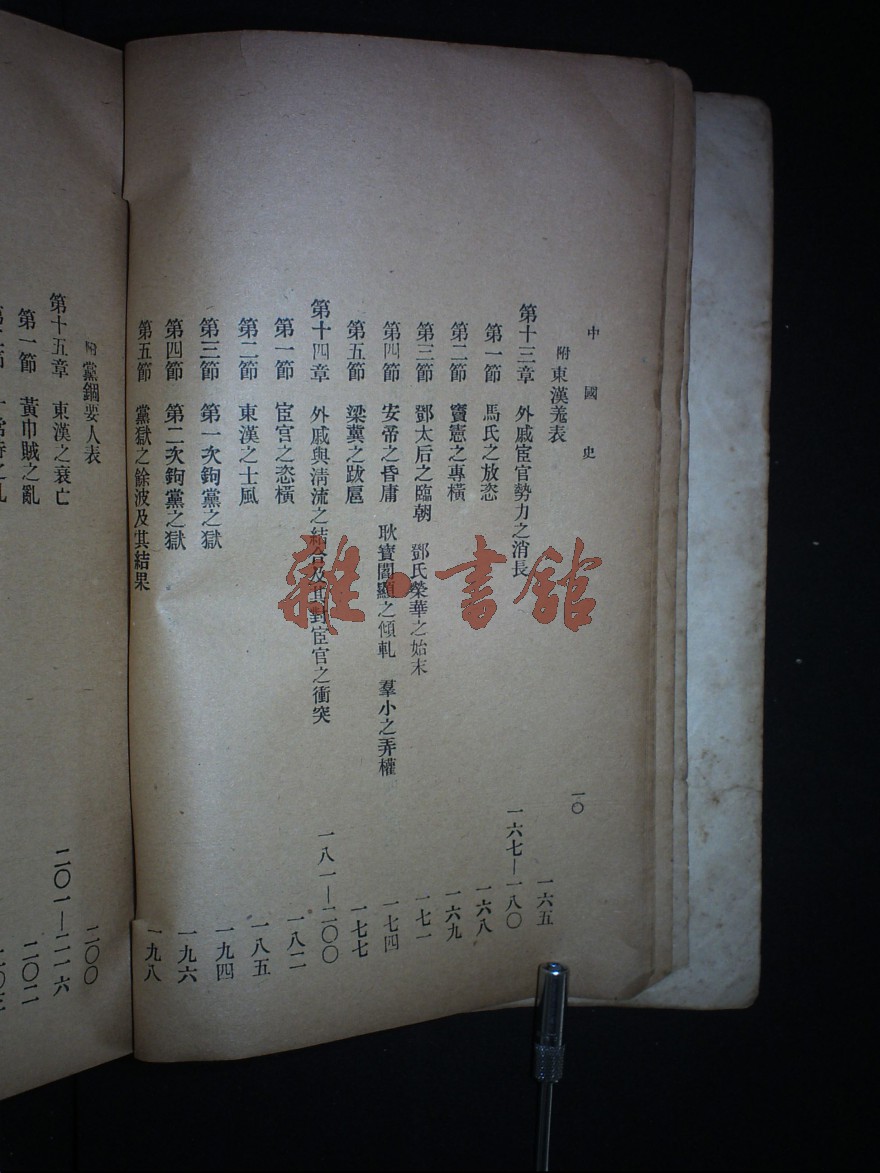 中國史
一〇
附 東漢羌表 一六五
第十三章 外戚宦官勢力之消長 一六七—一八〇
第一節 馬氏之放恣 一六八
第二節 竇憲之專橫 一六九
第三節 鄧太后之臨朝 鄧氏榮華之始末 一七一
第四節 安帝之昏庸 耿寶閻顯之傾軋 羣小之弄權 一七四
第五節 梁冀之跋扈 一七七
第十四章 外戚與清流之結合及其對宦官之衝突 一八一—二〇〇
第一節 宦官之恣橫 一八二
第二節 東漢之士風 一八五
第三節 第一次鉤黨之獄 一九四
第四節 第二次鉤黨之獄 一九六
第五節 黨獄之餘波及其結果 一九八
附 黨錮要人表 二〇〇
第十五章 東漢之衰亡 二〇一—二一六
第一節 黃巾賊之亂 二〇二
雜·書館